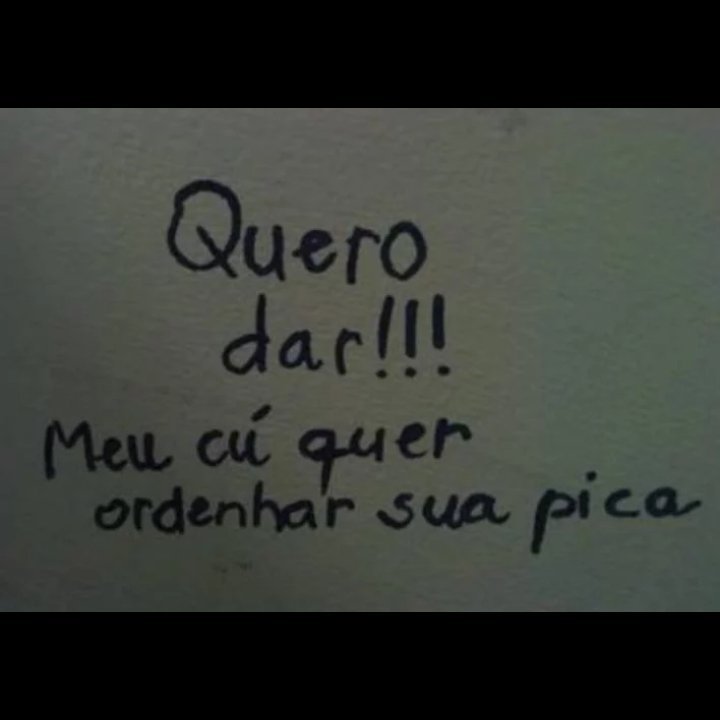 Quero
dar!!!
Meu cú quer
ordenhar sua pica